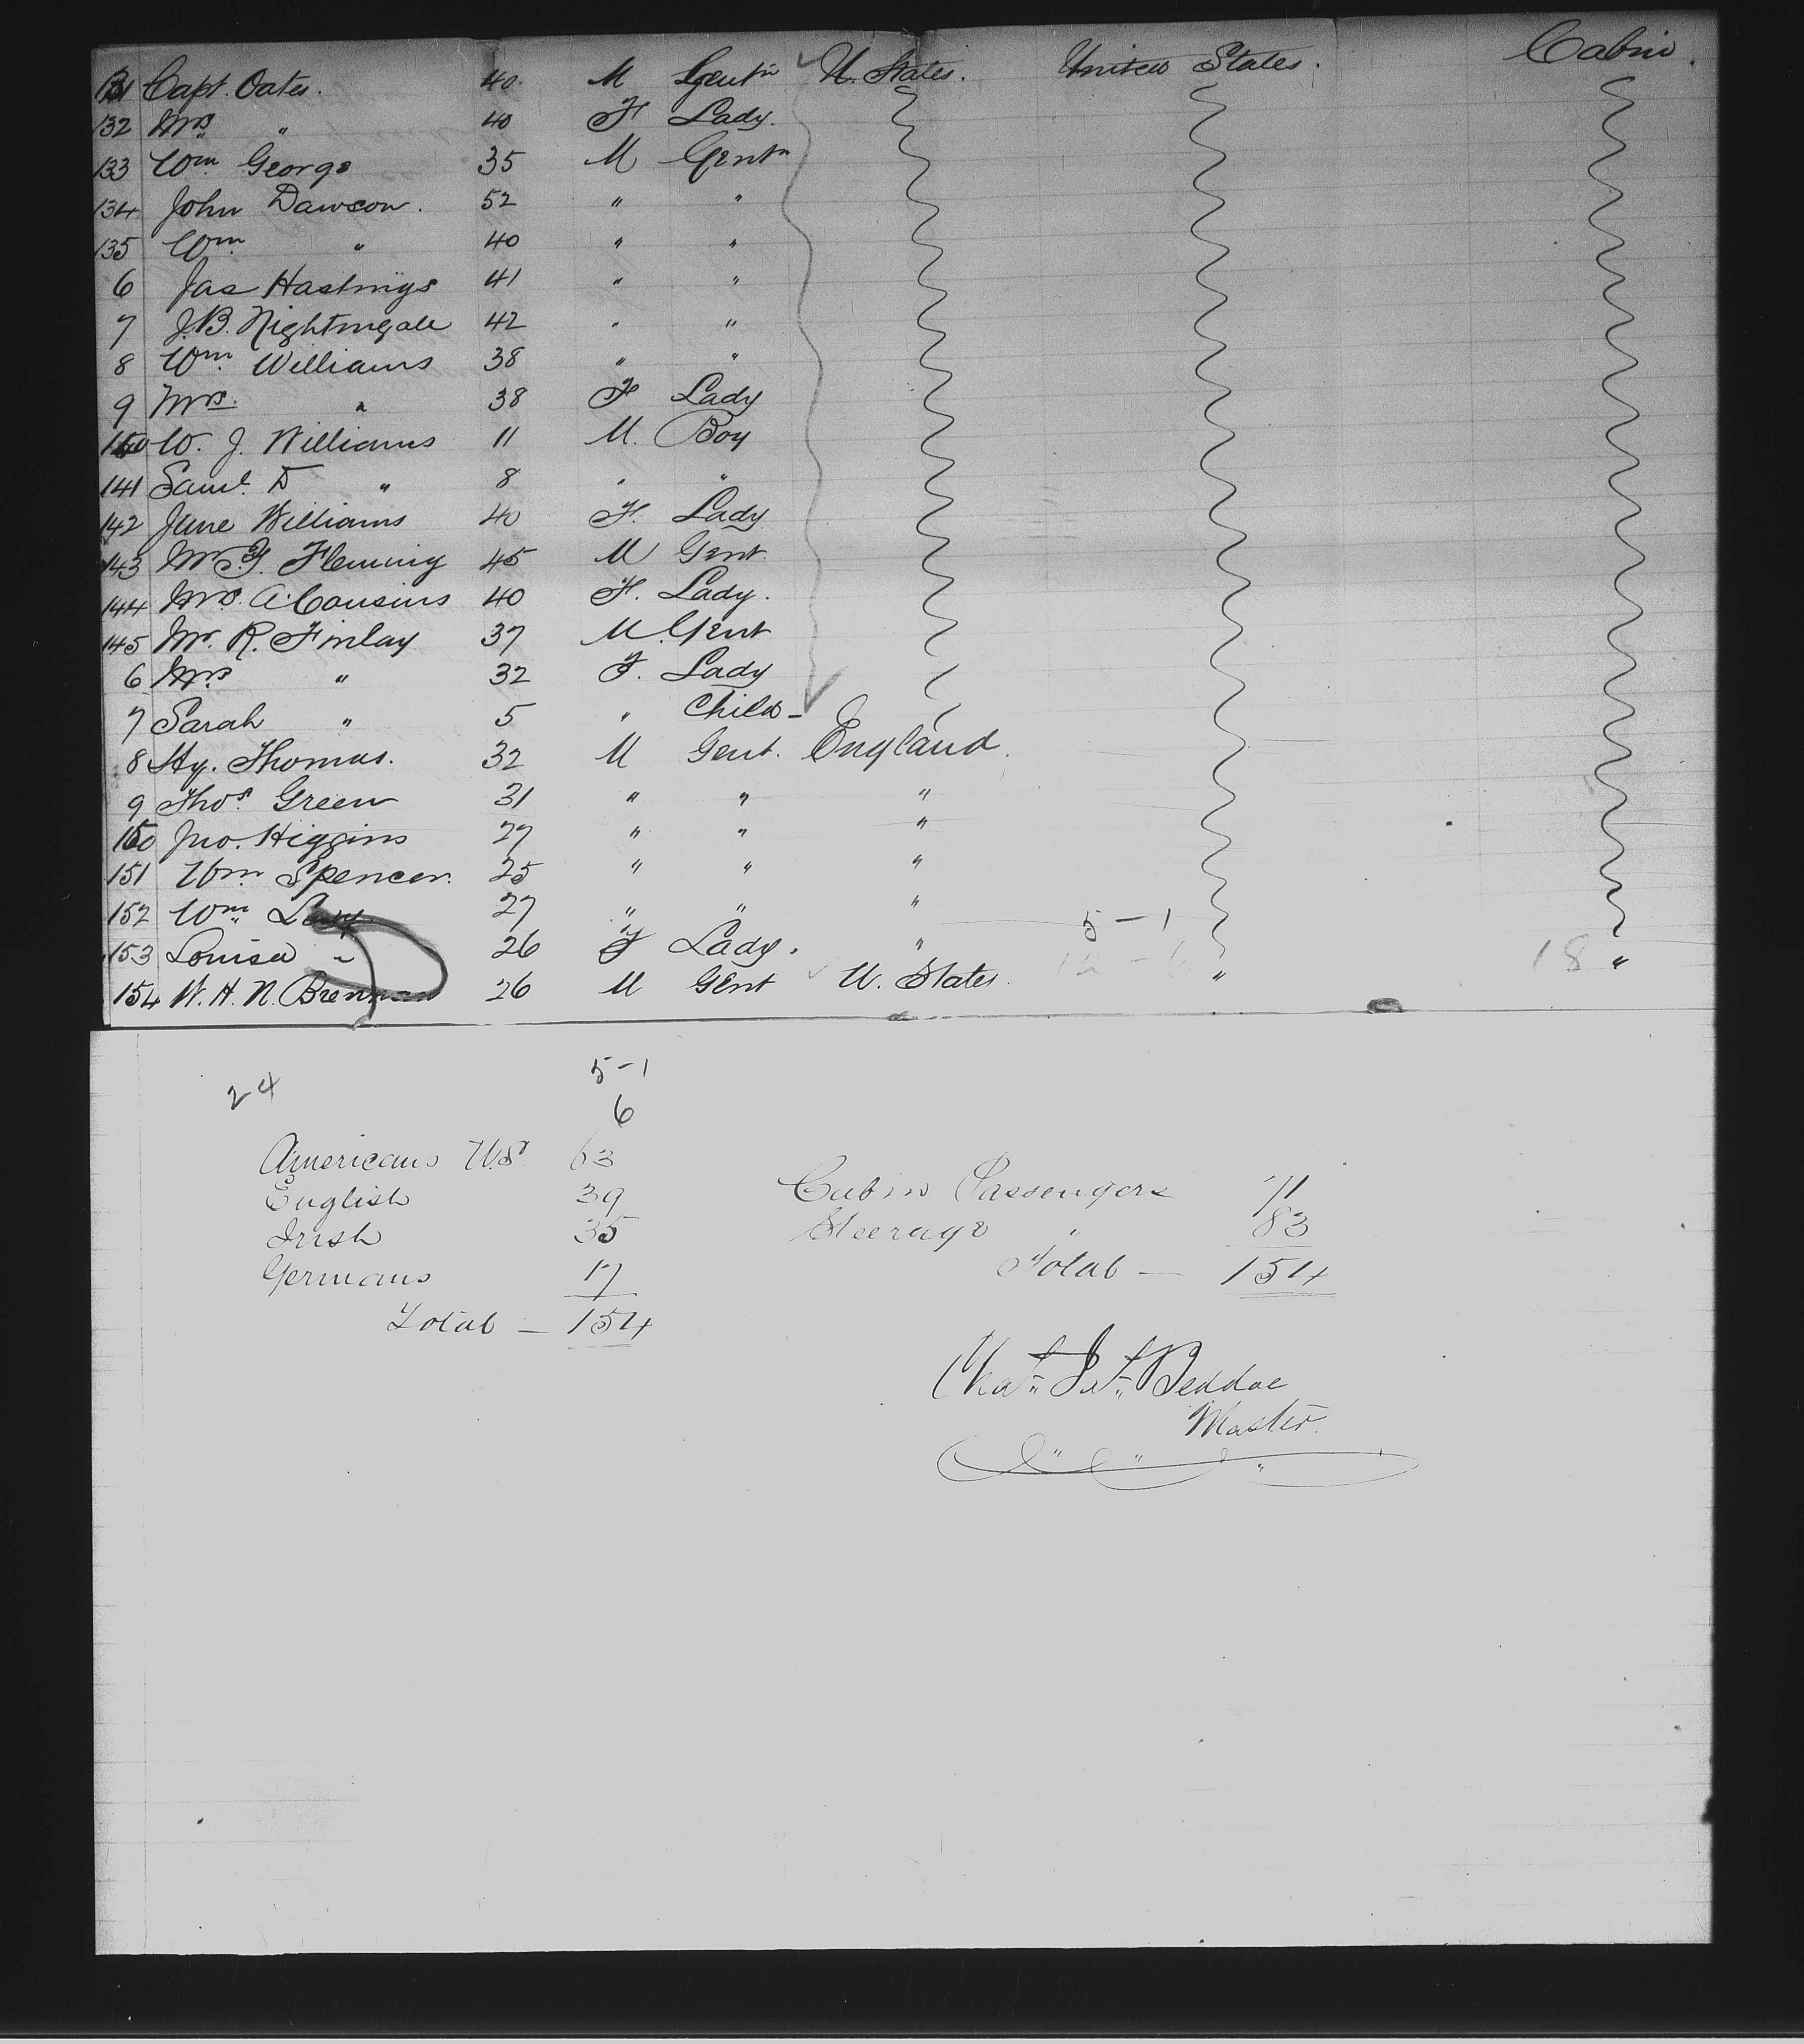 131 Capt. Oates. 40. M Gentn U. States. United States. Cabin.
132 Mrs " 40 F Lady.
133 Wm George 35 M Gentn
134 John Dawson. 52 " "
135 Wm " 40 " "
6 Jas Hastings 41 " "
7 J.B. Nightingale 42 " "
8 Wm. Williams 38 " "
9 Mrs. " 38 F Lady
140 W. J. Williams 11 M. Boy
141 Saml. D " 8 " "
142 Jane Williams 40 F. Lady
143 Mr G. Fleming 45 M Gent.
144 Mrs. A. Cousins 40 F. Lady.
145 Mr. R. Finlay 37 M. Gent
6 Mrs " 32 F. Lady
7 Sarah " 5 " Child -
8 Hy. Thomas. 32 M Gent. England.
9 Thos. Green 31 " " "
150 Jno. Higgins 27 " " "
151 Wm. Spencer. 25 " " "
152 Wm 27 " " " 5-1
153 Louisa " 26 F Lady. " 12-6 " 18 "
154 W. H. N. Brennan 26 M Gent U. States.
5-1
24
6
Americans U.S. 63
English 39 Cabin Passengers 71
Irish 35 Steerage " 83
Germans 17 Total — 154
Total — 154
Beddoe
Master.